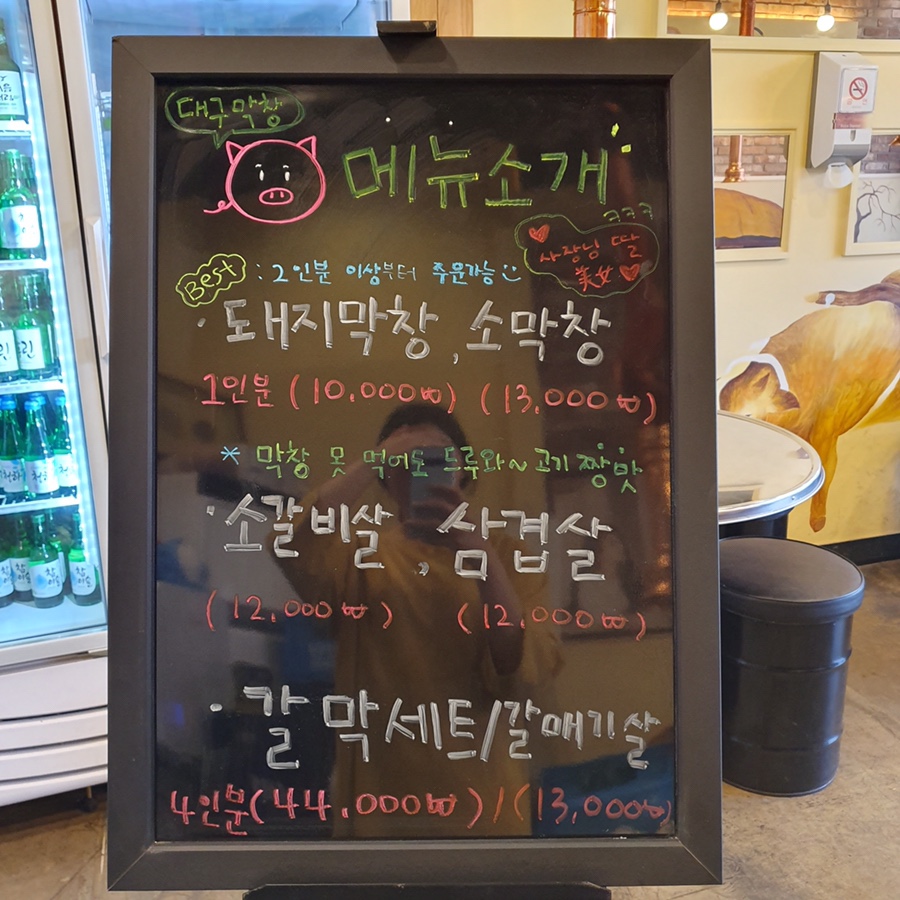 대구막창
메뉴소개
ㅋㅋㅋ
사장님 딸
美女
Best : 2인분 이상부터 주문가능
· 돼지막창, 소막창
1인분 (10,000₩) (13,000₩)
* 막창 못 먹어도 드루와~ 고기 짱맛
· 소갈비살, 삼겹살
(12,000₩) (12,000₩)
· 갈막세트/갈매기살
4인분(44,000₩) / (13,000₩)